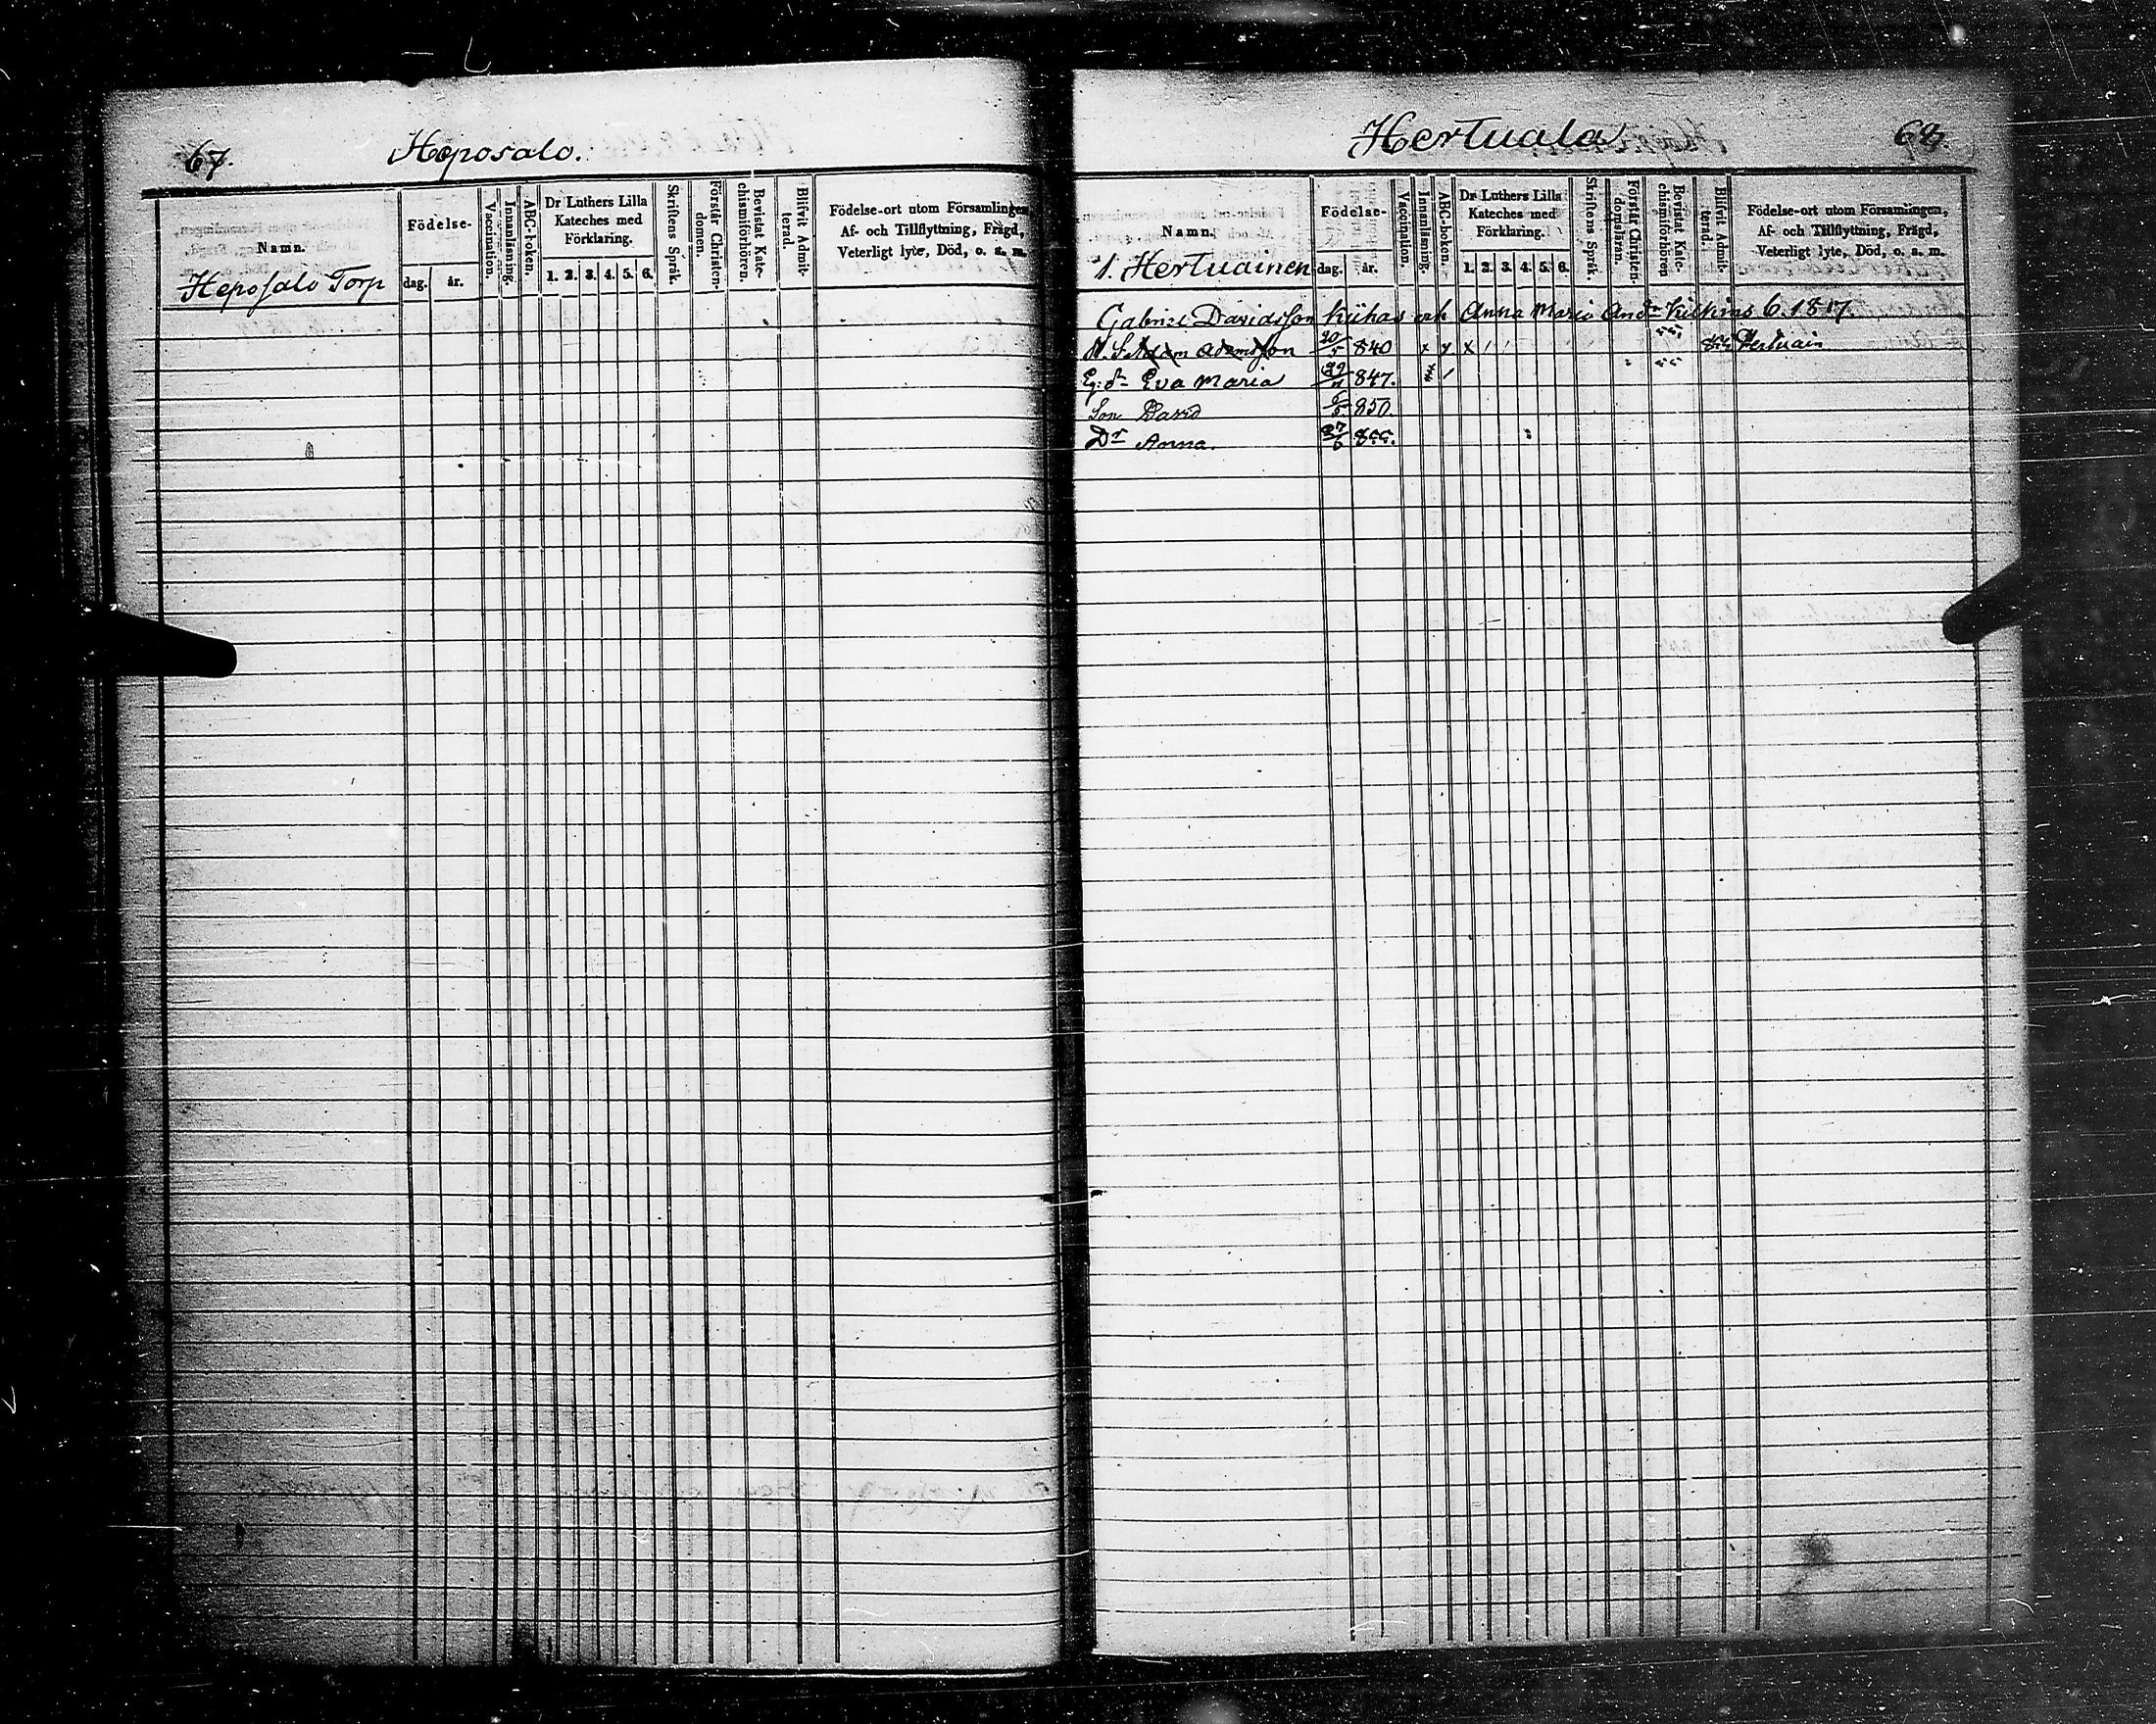 67.
Heposalo.
Namn.
Födelse-
dag.
år.
Vaccination.
Innanläsning.
ABC-boken.
Dr Luthers Lilla
Kateches med
Förklaring.
1. 2. 3. 4. 5. 6.
Skriftens Språk.
Förstår Christen-
domen.
Bevistat Kate-
chismiförhören.
Blifvit Admit-
terad.
Födelse-ort utom Församlingen,
Af- och Tillflyttning, Frägd,
Veterligt lyte, Död, o. s. m.
Heposalo Torp
Hertuala
68.
Namn.
Födelse-
dag.
år.
Vaccination.
Innanläsning.
ABC-boken.
Dr Luthers Lilla
Kateches med
Förklaring.
1. 2. 3. 4. 5. 6.
Skriftens Språk.
Förstår Christen-
domsläran.
Bevistat Kate-
chismiförhören
Blifvit Admit-
terad.
Födelse-ort utom Församlingen,
Af- och Tillflyttning, Frägd,
Veterligt lyte, Död, o. s. m.
1. Hertuainen
Gabriel Davidsson och Anna Maria 6. 1817.
Adam Adamsson 20/5 840 x x x
Eva Maria 847.
Son David 6/5 850
Dr Anna. 27/6 855.